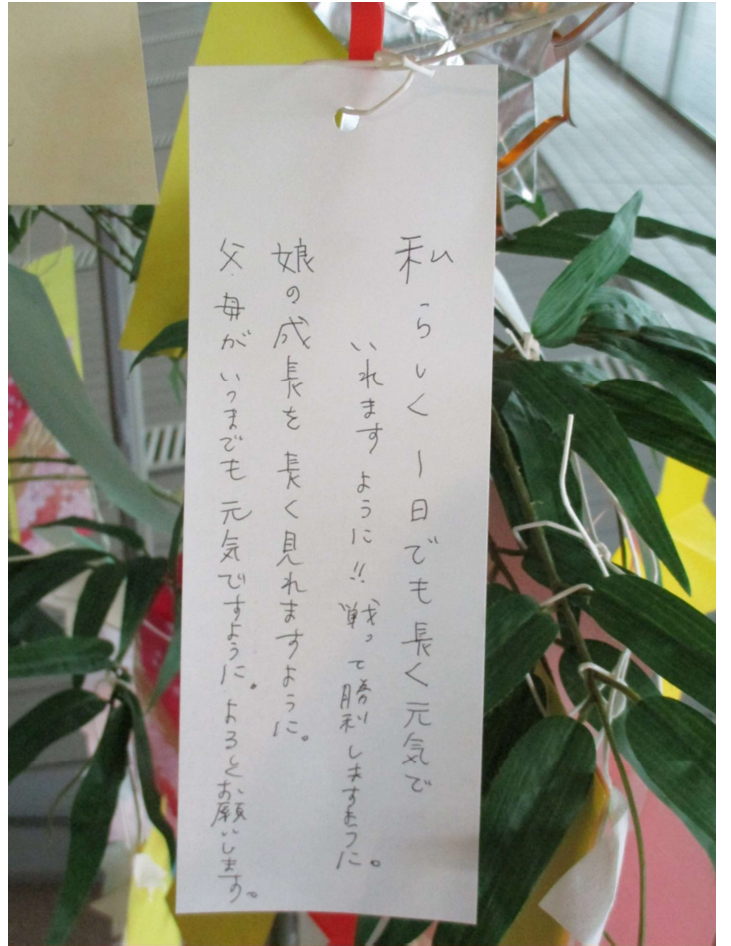 私らしく1日でも長く元気で
いれますように!!戦って勝利しますように。
娘の成長を長く見れますように。
父母がいつまでも元気ですように。よろしくお願いします。